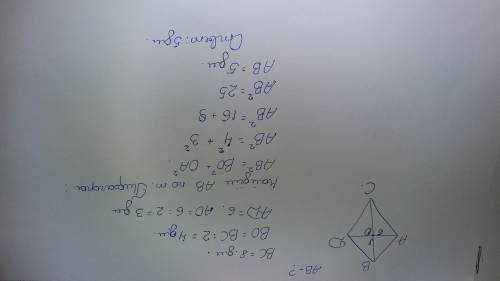 AB-?
C
A
B
D
BC = 8 дм.
BO = BC : 2 = 4 дм
AD = 6 ; AO = 6 : 2 = 3 дм
Найдем AB по т. Пифагора:
AB² = BO² + OA²
AB² = 4² + 3²
AB² = 16 + 9
AB² = 25
AB = 5 дм.
Ответ: 5 дм.